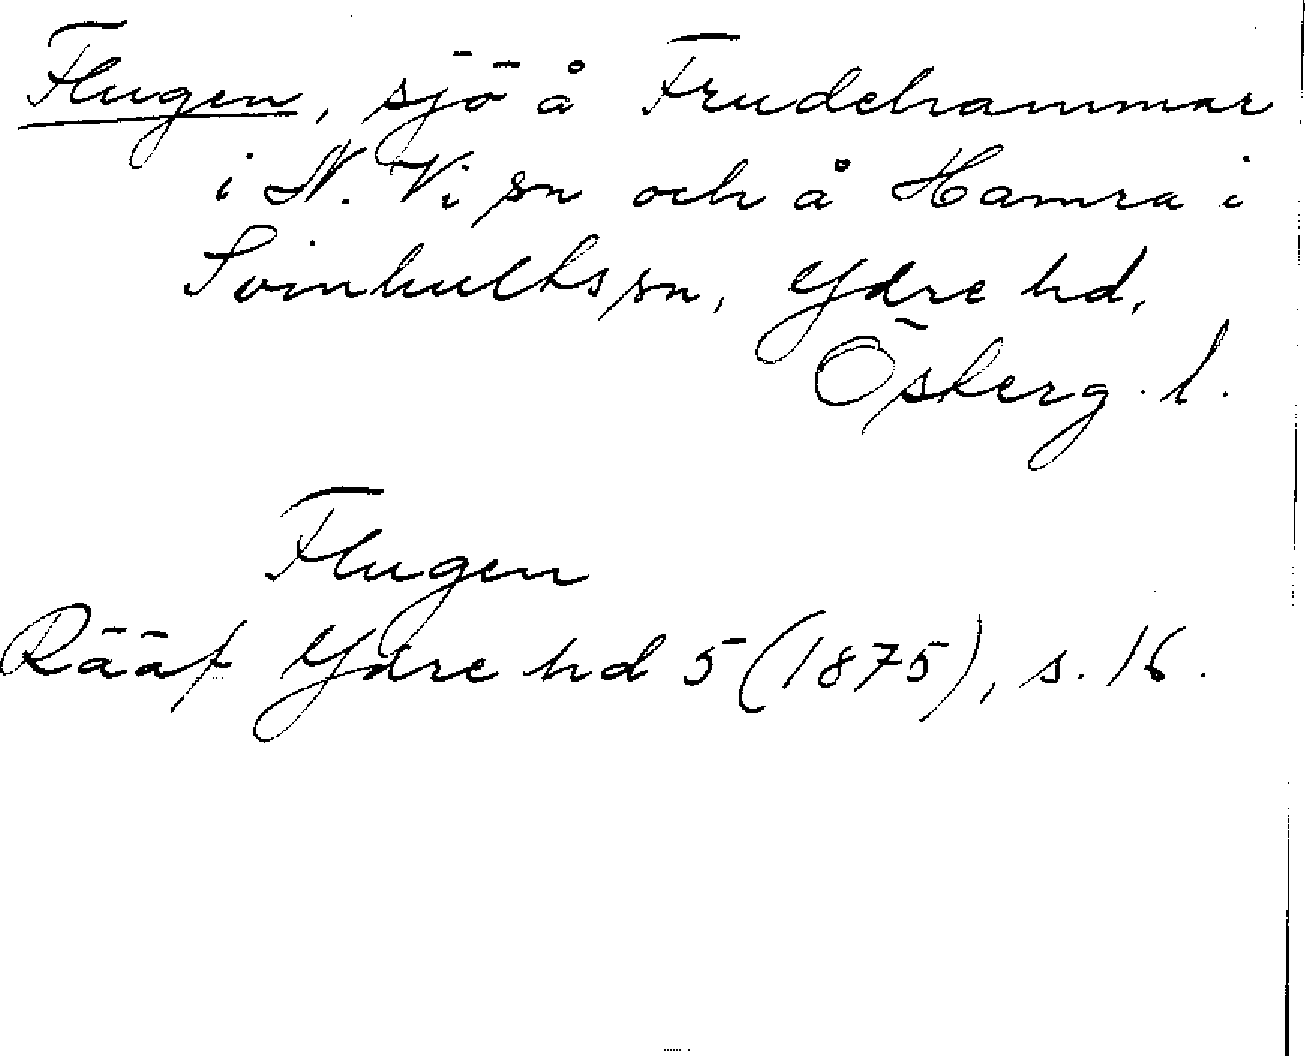 Flugen, sjö å Frudehammar
i N. Vi sn och å Hamra i
Svinhults sn, Ydre hd,
Österg. l.
Flugen
Rääf Ydre hd 5 (1875), s. 16.